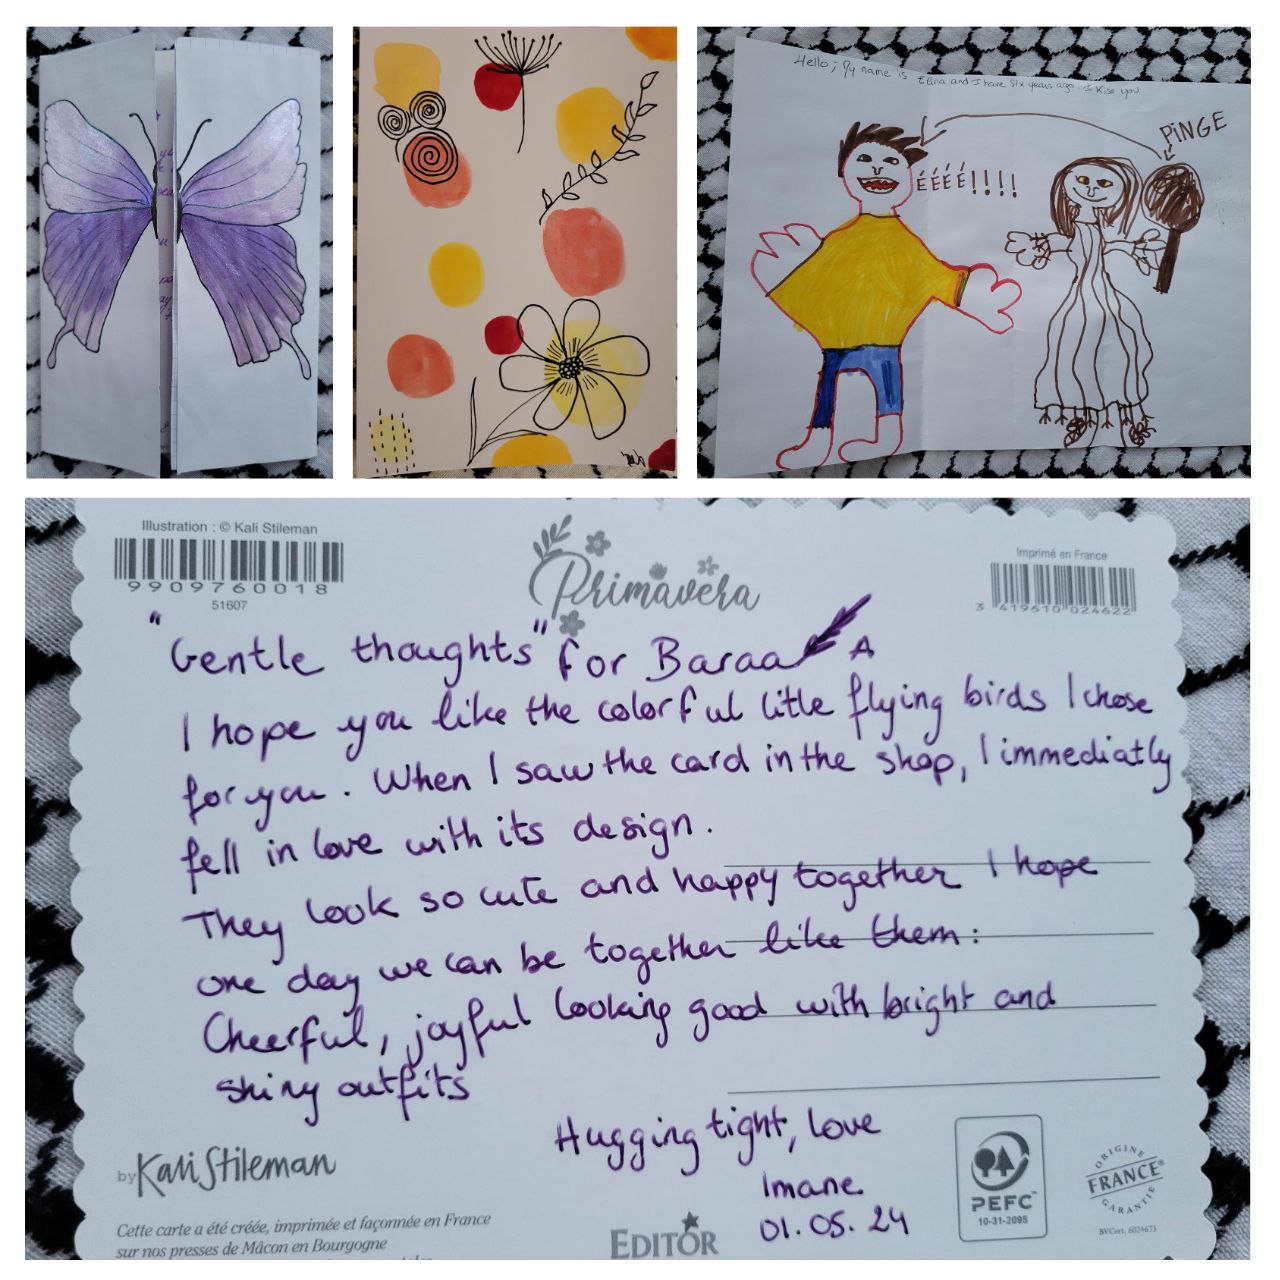 Hello; My name is Elina and I have six years ago. I Kiss you
PINGE
ÉÉÉÉ!!!!
Illustration : © Kali Stileman
9909760018
51607
Primavera
Imprimé en France
3 419610 024622
"Gentle thoughts" for Baraa A
I hope you like the colorful litle flying birds I chose
for you. When I saw the card in the shop, I immediatly
fell in love with its design.
They look so cute and happy together I hope
one day we can be together like them:
Cheerful, joyful looking good with bright and
shiny outfits
Hugging tight, love
Imane
01.05.24
by Kali Stileman
Cette carte a été créée, imprimée et façonnée en France
sur nos presses de Mâcon en Bourgogne
EDITOR
PEFC™
10-31-2095
ORIGINE
FRANCE®
GARANTIE
BVCert. 6024673